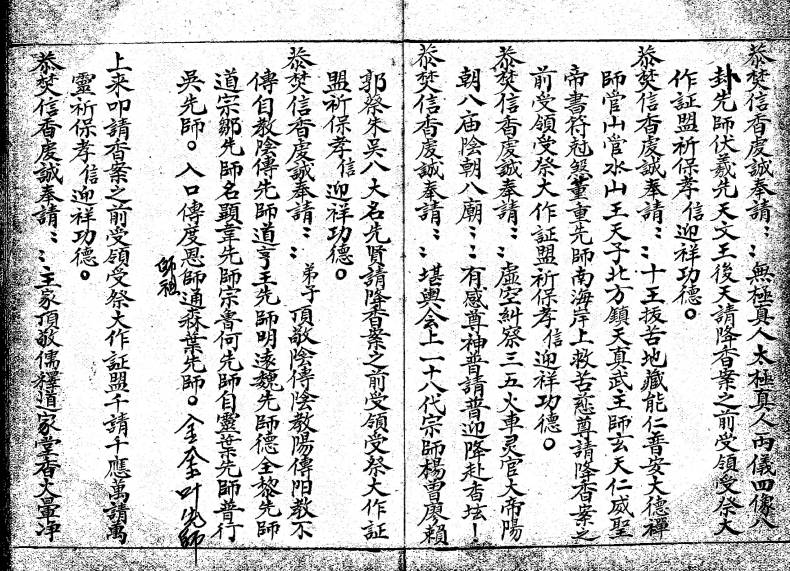 恭焚信香虔誠奉請：：無極真人太極真人両儀四像八
卦先師伏羲先天文王後天請降香案之前受領受祭大
作証盟祈保孝信迎祥功德。
恭焚信香虔誠奉請：：十王拔苦地藏能仁普安大德禪
師雪山雪水山王天子北方鎮天真武王師玄天仁威聖
帝書符董重先師南海岸上救苦慈尊請降香案之
前受領受祭大作証盟祈保孝信迎祥功德。
恭焚信香虔誠奉請：：虛空糾察三五火車灵官大帝陽
朝八庙陰朝八廟：：有感尊神普請普迎降赴香坛
恭焚信香虔誠奉請：：堪輿会上一十八代宗師楊曹廖賴
郭蔡朱吳八大名先賢請降香案之前受領受祭大作証
盟祈保孝信迎祥功德。
恭焚信香虔誠奉請：：弟子頂敬陰傳陰教陽傳阳教不
傳自教陰傳先師道亨王先師明遠魏先師德全黎先師
道宗鄒先師名顕韋先師宗魯何先師自靈葉先師普行
吳先師。入口傳度恩師通森葉先師。金叶先師
師祖
上来叩請香案之前受領受祭大作証盟千請千應萬請萬
靈祈保孝信迎祥功德。
恭焚信香虔誠奉請：：主家頂敬儒釋道家堂香火量净